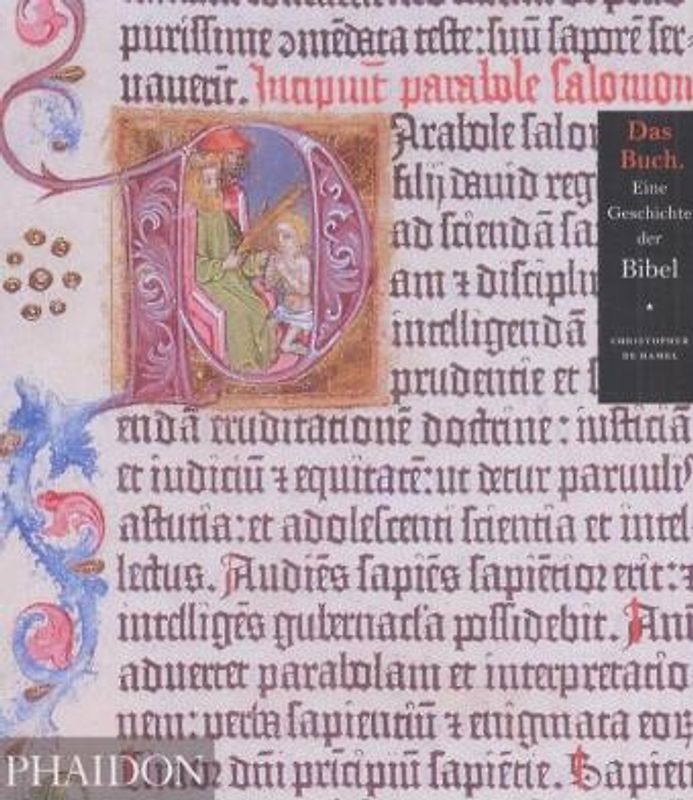 purissime ↄmēdata teste: suū saporē ser-
uauerit. Incipiūt parabole salomon
Arabole salom
filij dauid reg
ad sciendā sa
am ⁊ disciplin
intelligendā
prudentie et
endā eruditationē doctrine: iusticiā
et iudiciū ⁊ equitatē: ut detur paruulis
astutia: et adolescenti scientia et intel
lectus. Audiēs sapiēs sapiētior erit: ⁊
intelligēs gubernacl'a possidebit. Ani
aduertet parabolam et interpretatio
nem: verba sapientiū ⁊ enigmata eoꝝ
Timor dn̄i prīcipiū sapiētie. Sapien
Das
Buch.
Eine
Geschichte
der
Bibel
CHRISTOPHER
DE HAMEL
PHAIDON